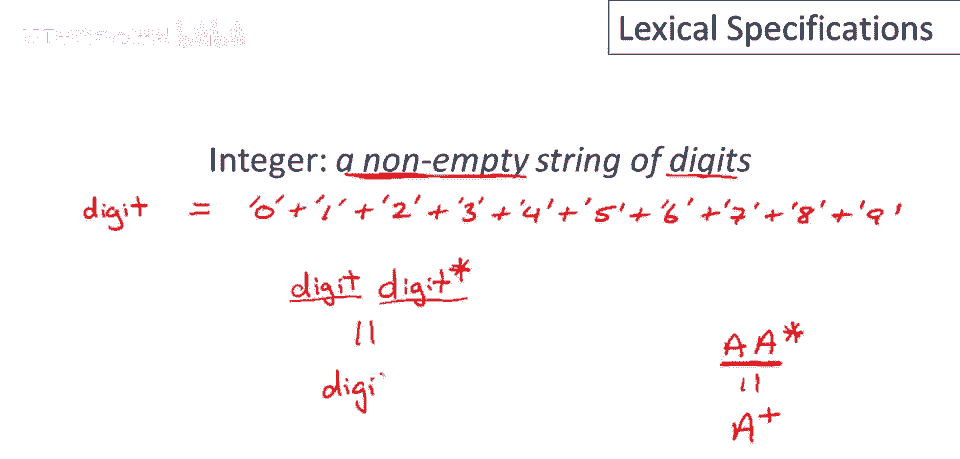 Lexical Specifications
Integer: a non-empty string of digits
digit = '0' + '1' + '2' + '3' + '4' + '5' + '6' + '7' + '8' + '9'
digit digit*
||
digi
AA*
||
A+